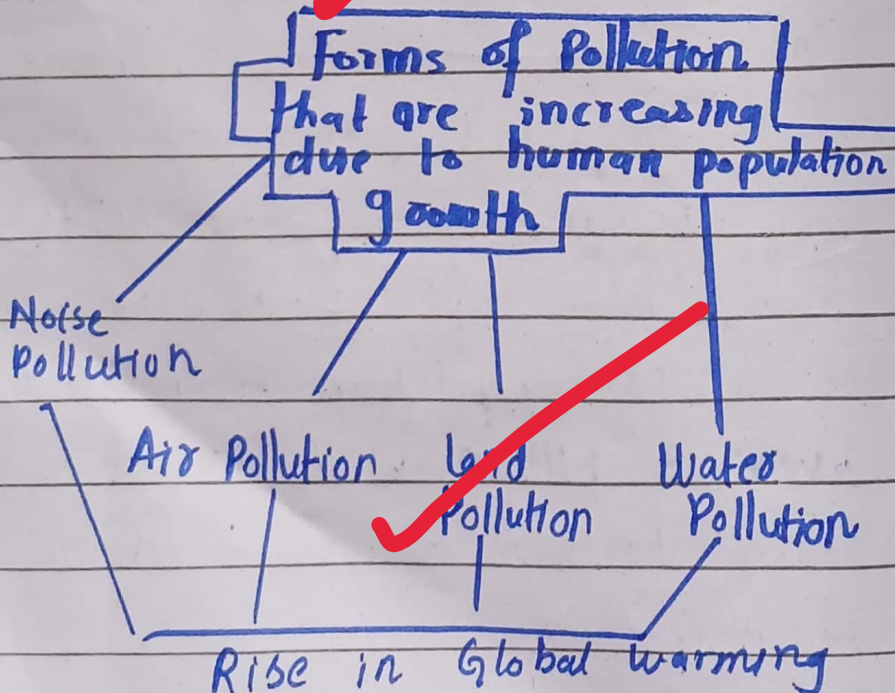 Forms of Pollution
that are increasing
due to human population
growth
Noise
Pollution
Air Pollution
Land
Pollution
Water
Pollution
Rise in Global warming